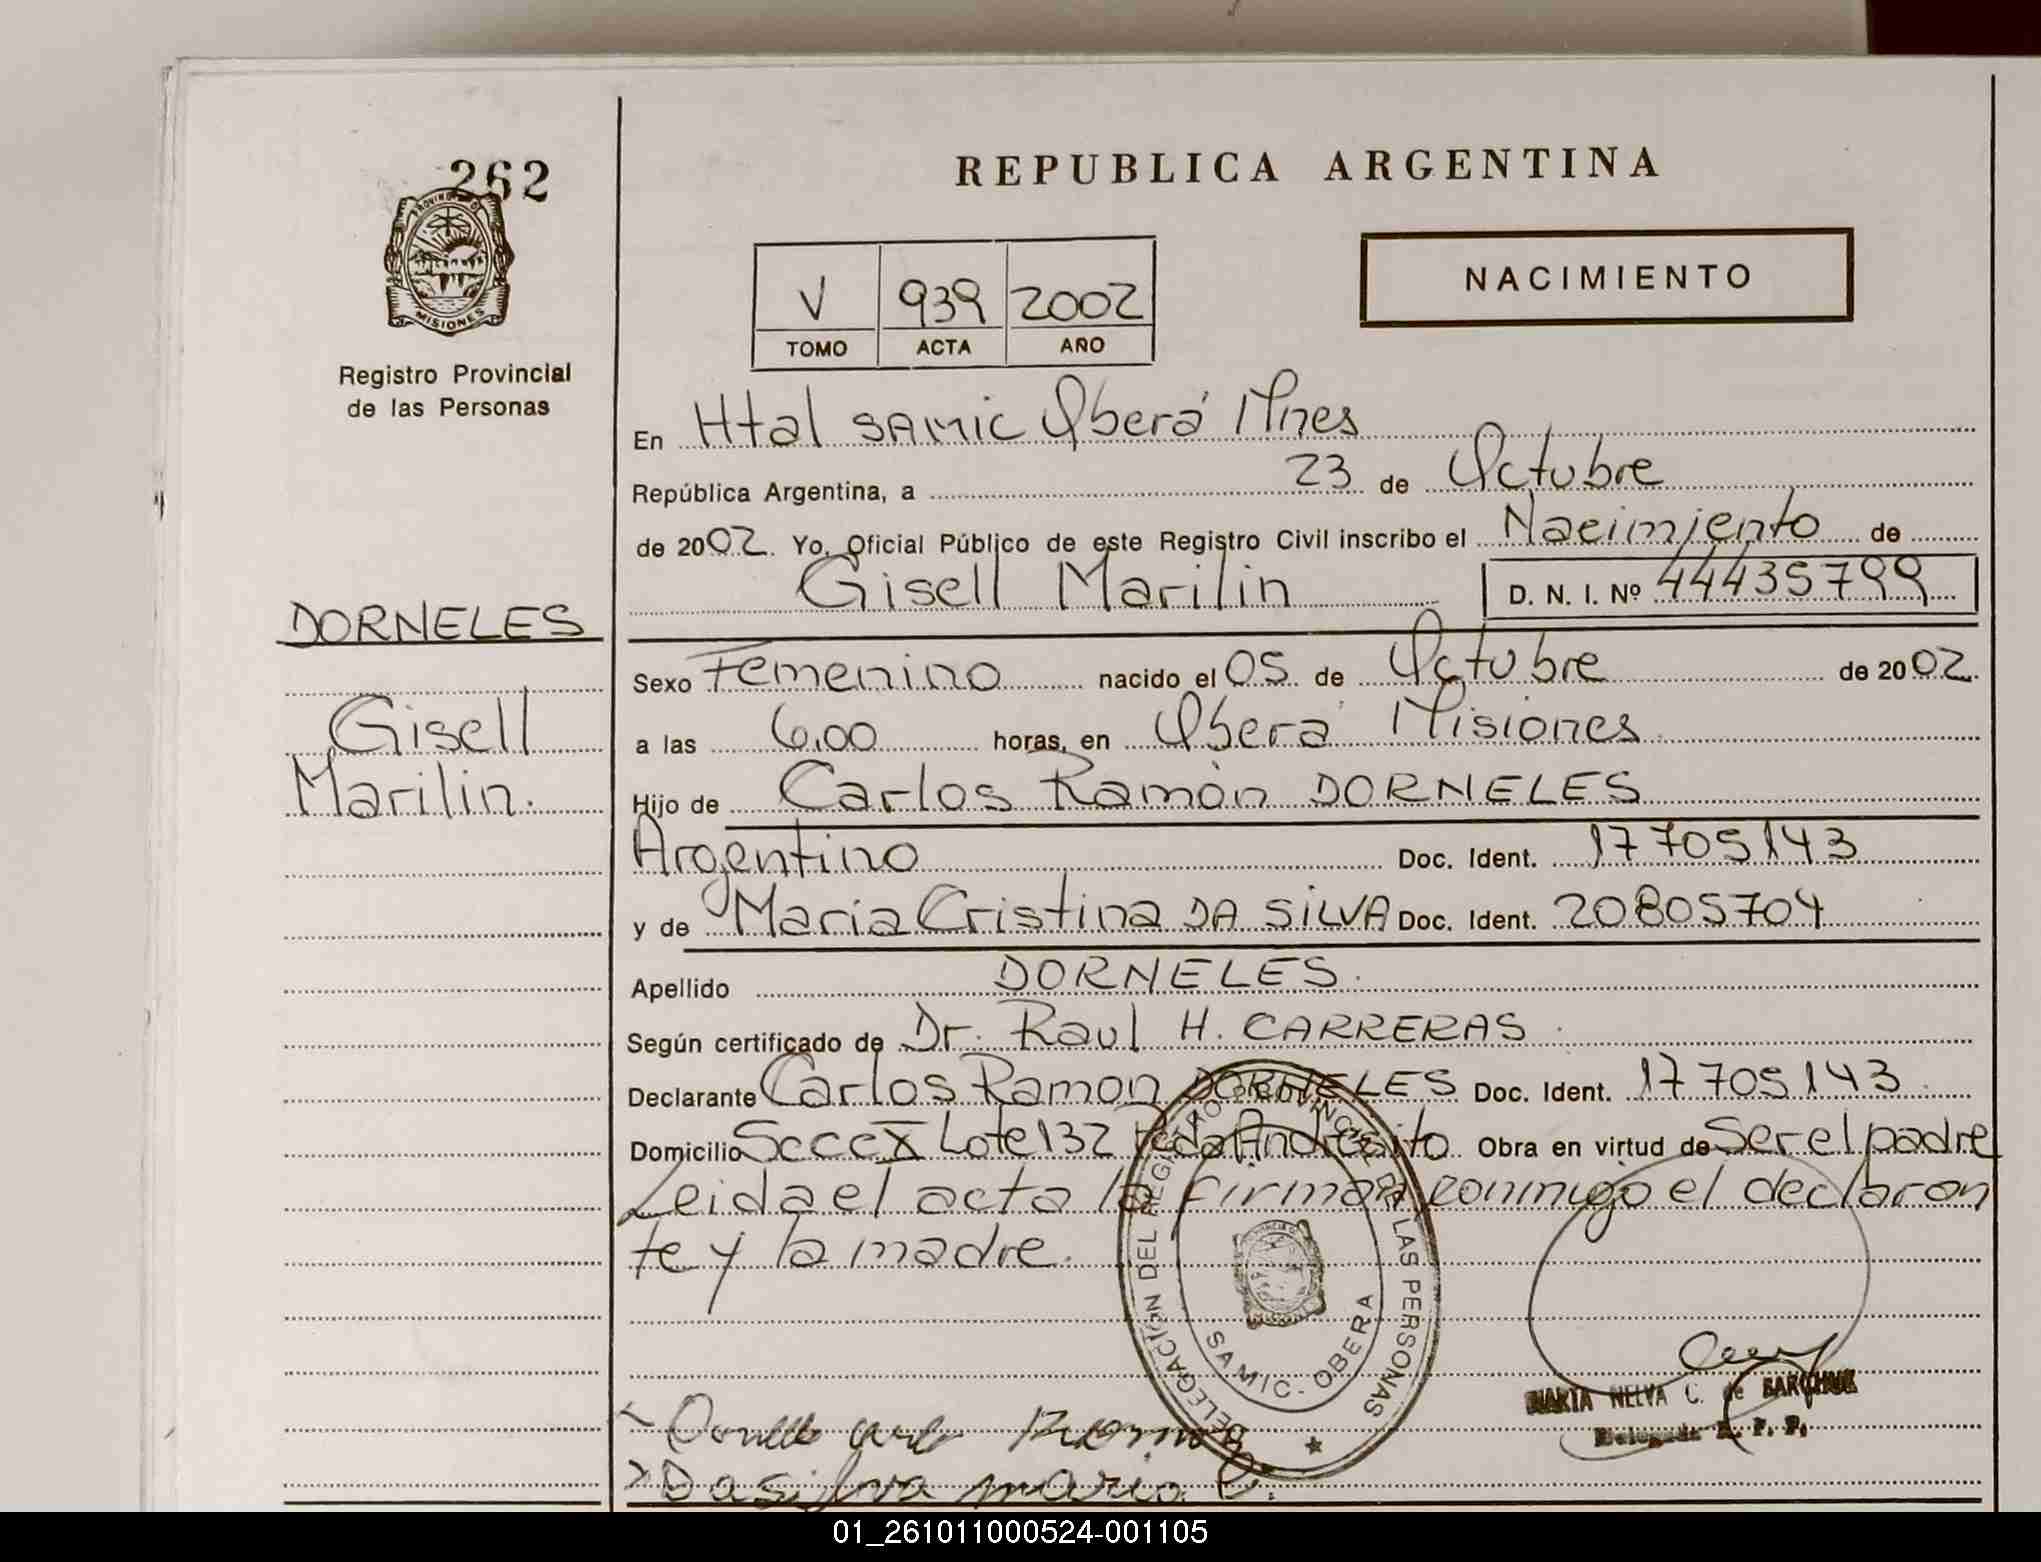 262
PROVINCIA DE
MISIONES
Registro Provincial
de las Personas
DORNELES
Gisell
Marilin.
REPUBLICA ARGENTINA
V 939 2002
TOMO ACTA AÑO
NACIMIENTO
En Htal SAMIC Oberá Mnes
República Argentina, a 23 de Octubre
de 2002. Yo, Oficial Público de este Registro Civil inscribo el Nacimiento de
Gisell Marilin D. N. I. Nº 44435799
Sexo Femenino nacido el 05 de Octubre de 2002.
a las 6,00 horas, en Oberá Misiones
Hijo de Carlos Ramón DORNELES
Argentino Doc. Ident. 17705143
y de María Cristina DA SILVA Doc. Ident. 20805704
Apellido DORNELES.
Según certificado de Dr. Raul H. CARRERAS.
Declarante Carlos Ramon DORNELES Doc. Ident. 17705143.
Domicilio Secc X Lote 132 Andresito Obra en virtud de Ser el padre
Leida el acta la firman conmigo el declaran
te y la madre.
DELEGACIÓN DEL REGISTRO PROVINCIAL DE LAS PERSONAS
SAMIC - OBERA
MARTA NELVA C. de
Delegada R. P. P.
Dasilva maria C.
01_261011000524-001105